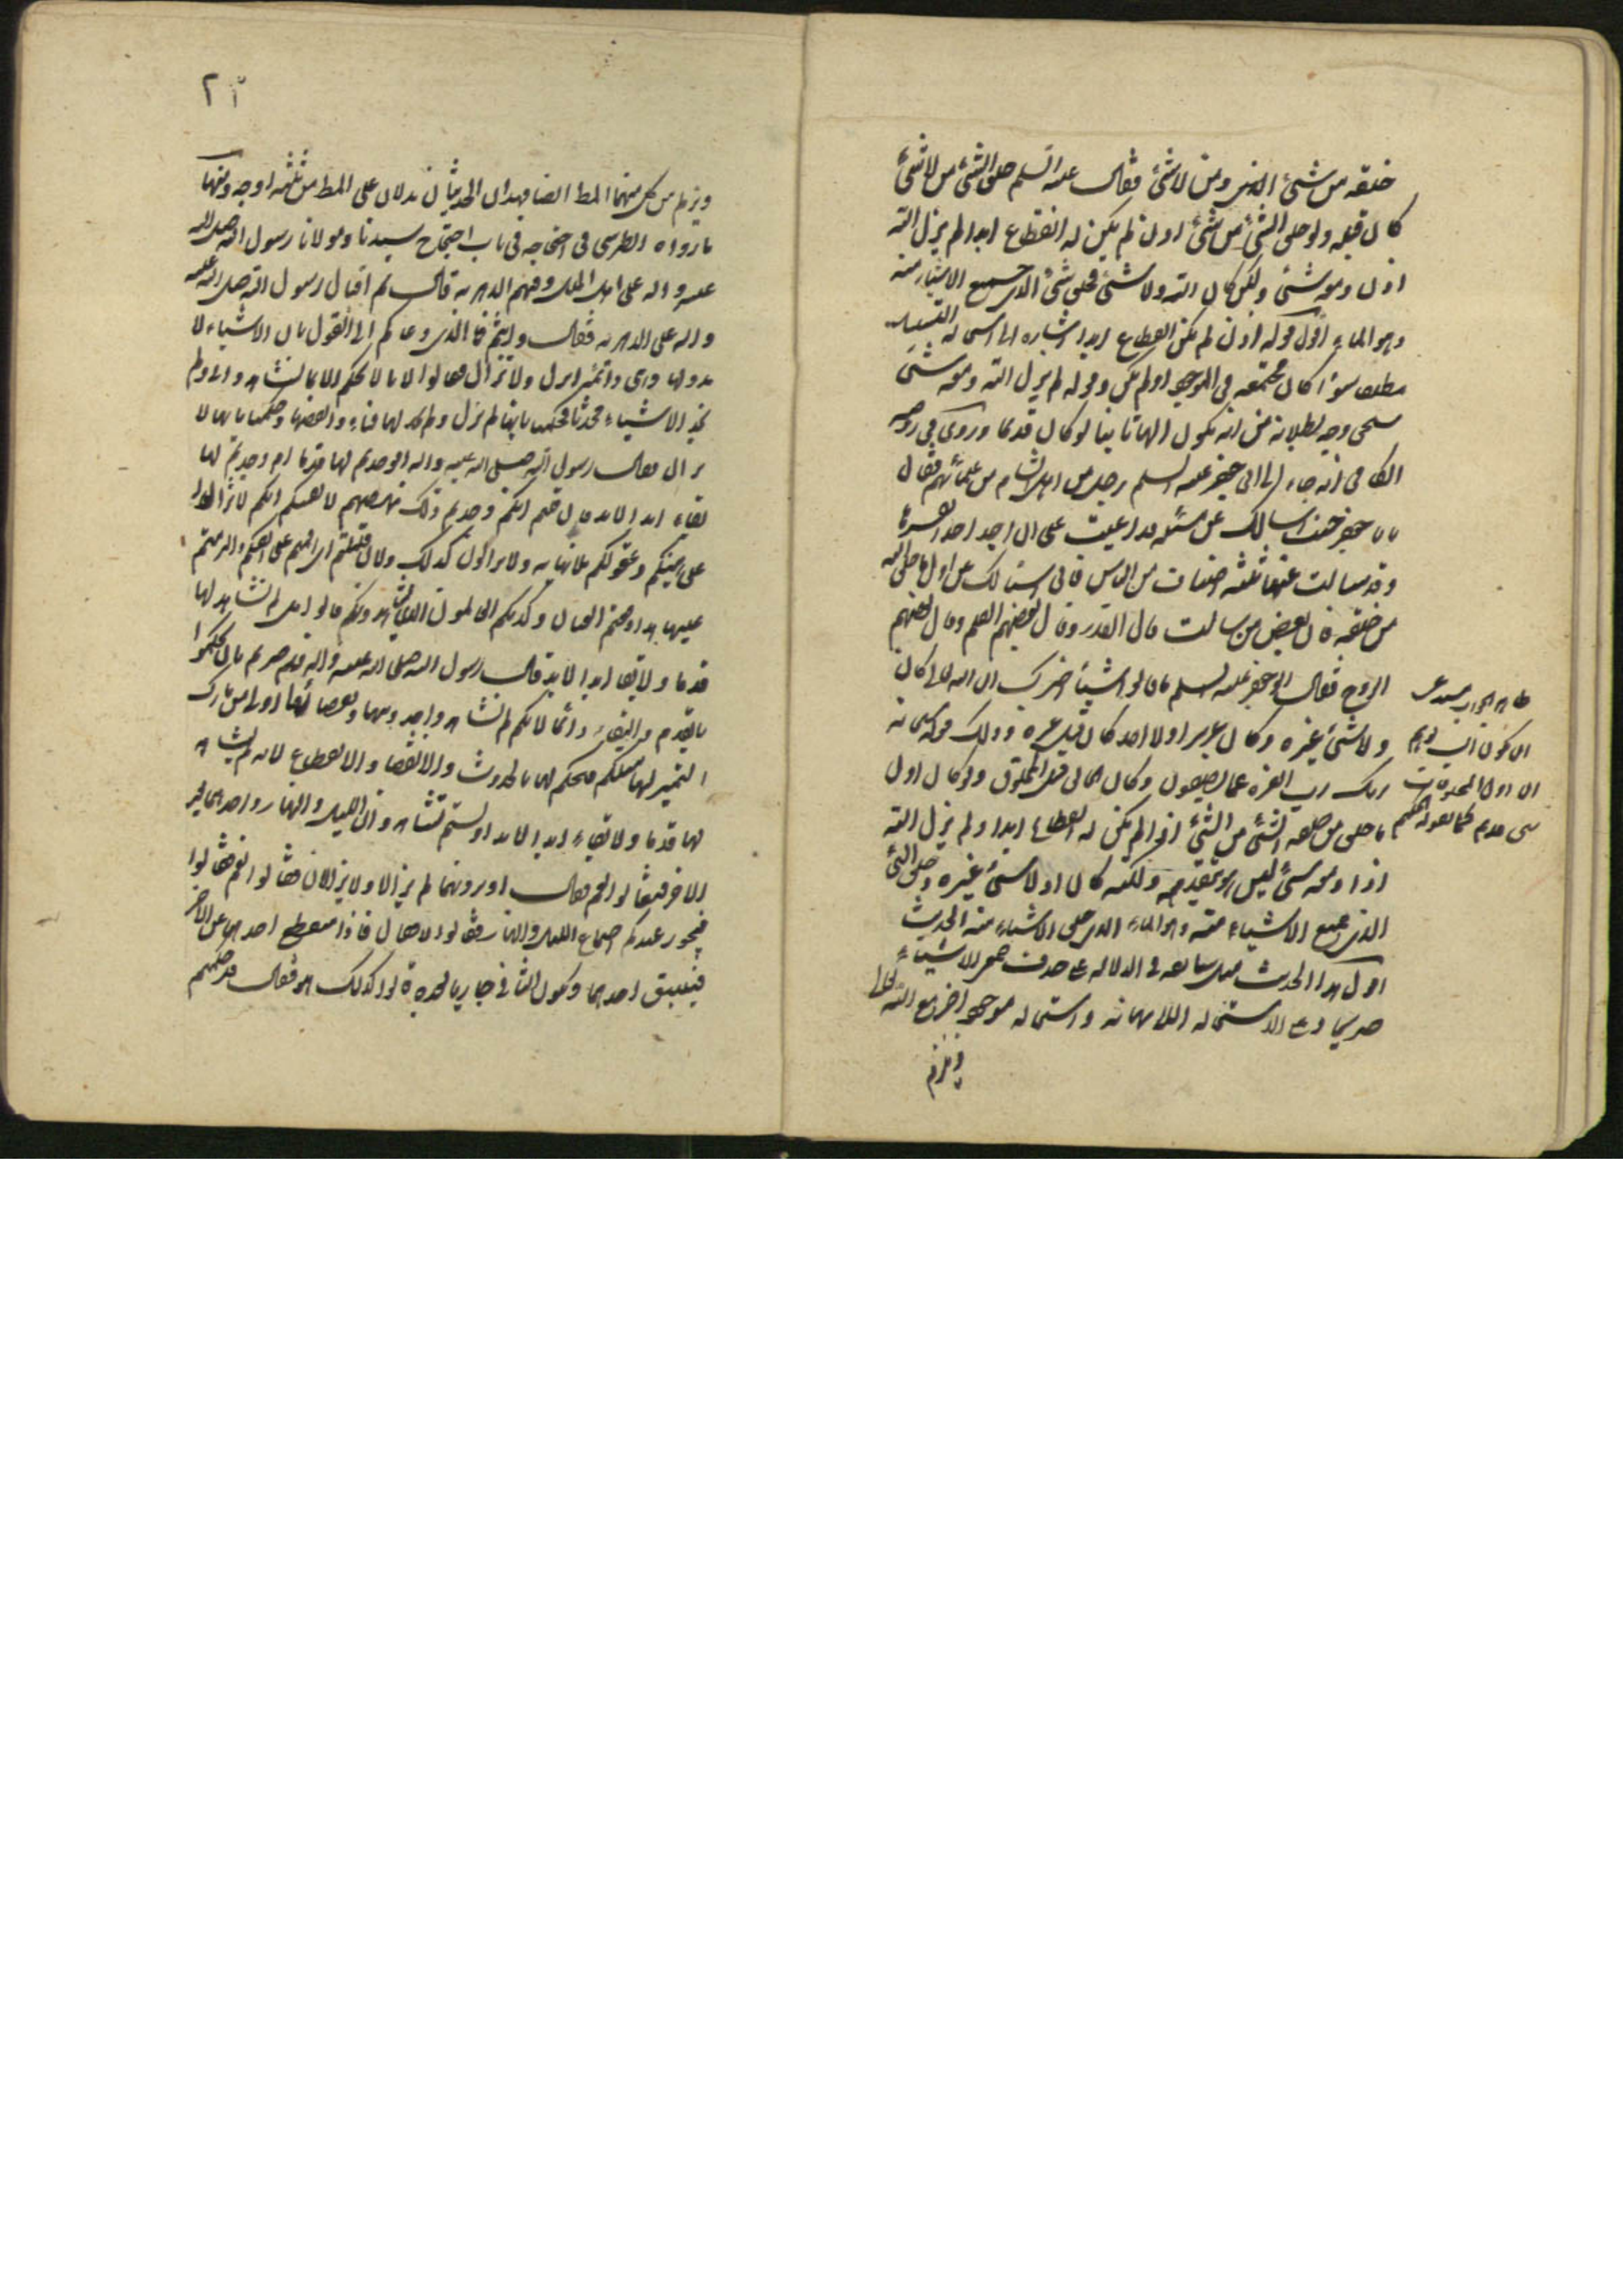 خلقه من شیئ او من لا شیئ فقال علیه السلم خلق الشیئ من لا شیئ
کان قبله ولو خلق الشیئ من شیئ اذن لم یکن له انقطاع ابدا لم یزل الله
اذن ومعه شیئ ولکن کان الله ولا شیئ فخلق شیئ الذی جمیع الاشیاء منه
وهو الماء اقول قوله اذن لم یکن انقطاع ابدا اشارة الی استحالة التسلسل
مطلقا سواء کان مجتمعة فی الوجود او لم یکن وقوله لم یزل الله ومعه شیئ
وجه بطلانه من انه یکون الها ثانیا لو کان قدیما وروی فی روضة
الکافی انه جاء الی ابی جعفر علیه السلم رجل من اهل الشام من علمائهم فقال
یا با جعفر جئت اسالک عن مسئلة قد اعیت علی ان اجد احدا یفسرها
وقد سالت عنها ثلثة اصناف من الناس فانی اسئالک عن اول ما خلق الله
من خلقه فان بعض من سالت قال القدر وقال بعضهم القلم وقال بعضهم
الروح فقال ابو جعفر علیه السلم ما قالوا شیئا اخبرک ان الله تعالی کان
ولا شیئ غیره وکان عزیزا ولا احد کان قبل عزه وذلک قوله سبحانه
ربک رب العزة عما یصفون وکان الخالق قبل المخلوق ولو کان اول
ما خلق من خلقه الشیئ من الشیئ اذا لم یکن له انقطاع ابدا ولم یزل الله
اذا ومعه شیئ لیس هو یتقدمه ولکنه کان اذ لا شیئ غیره وخلق الشیئ
الذی جمیع الاشیاء منه وهو الماء الذی خلق الاشیاء منه الحدیث
اقول هذا الحدیث مثل سابقه فی الدلالة علی حدوث جمیع الاشیاء
صریحا وعلی الاستحالة اللانهایة واستحالة موجود اخر مع الله تعالی
ویلزم
ان یکون
ان اول المخلوقات
شیئ قدیم کما یقوله الحکیم
۲۳
ویلزم من کل منهما المط ایضا فهذان الحدیثان یدلان علی المط من ثلثة اوجه ومنها
ما رواه الطبرسی فی احتجاجه فی باب احتجاج سیدنا ومولانا رسول الله صلی الله
علیه واله علی اهل الملل وفیهم الدهریة قال ثم اقبل رسول الله صلی الله علیه
واله علی الدهریة فقال وانتم فما الذی دعاکم الی القول بان الاشیاء لا
بدو لها وهی دائمة لم تزل ولا تزال فقالوا لانا لا نحکم الا بما نشاهد ولم
نجد الاشیاء محدثا فحکمنا بانها لم تزل ولم نجد لها فناء وانقضاء وحکمنا بانها لا
تزال فقال رسول الله صلی الله علیه واله افوجدتم لها قدما ام وجدتم لها
بقاء ابد الابد فان قلتم انکم وجدتم ذلک انهضتم لانفسکم انکم لم تزالوا
علی هیئتکم وعقولکم بلا نهایة ولا تزالون کذلک ولئن قلتم هذا
دفعتم العیان وکذبکم العالمون الذین یشاهدونکم قالوا بل لم نشاهد لها
قدما ولا بقاء ابد الابد قال رسول الله صلی الله علیه واله فلم صرتم بان تحکموا
بالقدم والبقاء دائما لانکم لم تشاهدوا حدوثها وانقضائها اولی من تارک
التمییز لها مثلکم فیحکم لها بالحدوث والانقضاء والانقطاع لانه لم یشاهد
لها قدما ولا بقاء ابد الابد اولستم تشاهدون اللیل والنهار واحدهما بعد
الاخر فقالوا نعم فقال اترونهما لم یزالا ولا یزالان فقالوا نعم فقال
فیجوز عندکم اجتماع اللیل والنهار فقالوا لا فقال فاذا منقطع احدهما عن الاخر
فیسبق احدهما ویکون الثانی جاریا بعده قالوا کذلک هو فقال قد حکمتم